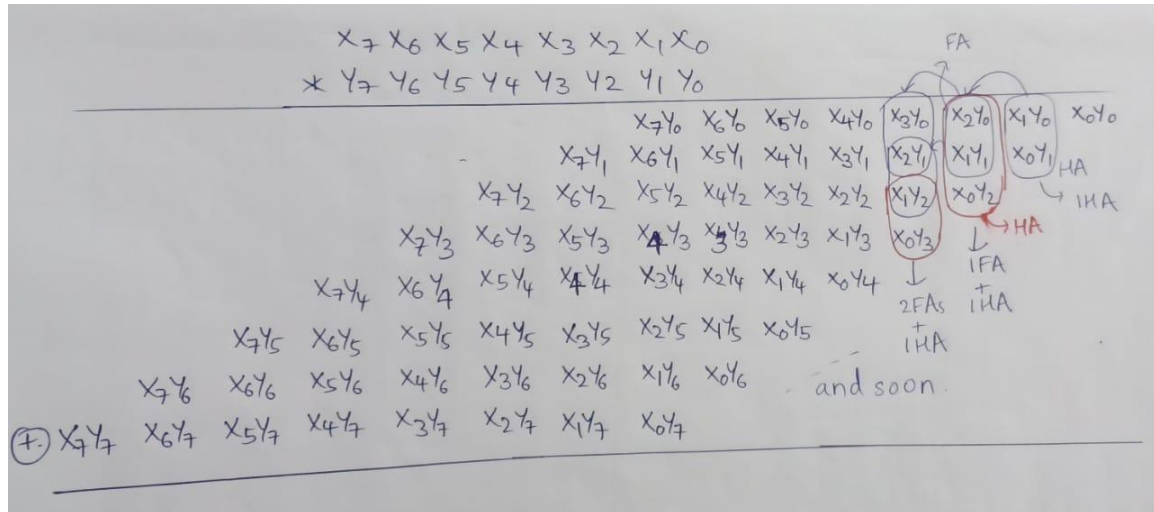 X7 X6 X5 X4 X3 X2 X1 X0 FA
* Y7 Y6 Y5 Y4 Y3 Y2 Y1 Y0
X7Y0 X6Y0 X5Y0 X4Y0 X3Y0 X2Y0 X1Y0 X0Y0
X7Y1 X6Y1 X5Y1 X4Y1 X3Y1 X2Y1 X1Y1 X0Y1 HA
X7Y2 X6Y2 X5Y2 X4Y2 X3Y2 X2Y2 X1Y2 X0Y2 → 1HA
X7Y3 X6Y3 X5Y3 X4Y3 X3Y3 X2Y3 X1Y3 X0Y3 → HA
X7Y4 X6Y4 X5Y4 X4Y4 X3Y4 X2Y4 X1Y4 X0Y4
2FAs + 1HA
1FA + 1HA
X7Y5 X6Y5 X5Y5 X4Y5 X3Y5 X2Y5 X1Y5 X0Y5
X7Y6 X6Y6 X5Y6 X4Y6 X3Y6 X2Y6 X1Y6 X0Y6 and so on.
+ X7Y7 X6Y7 X5Y7 X4Y7 X3Y7 X2Y7 X1Y7 X0Y7